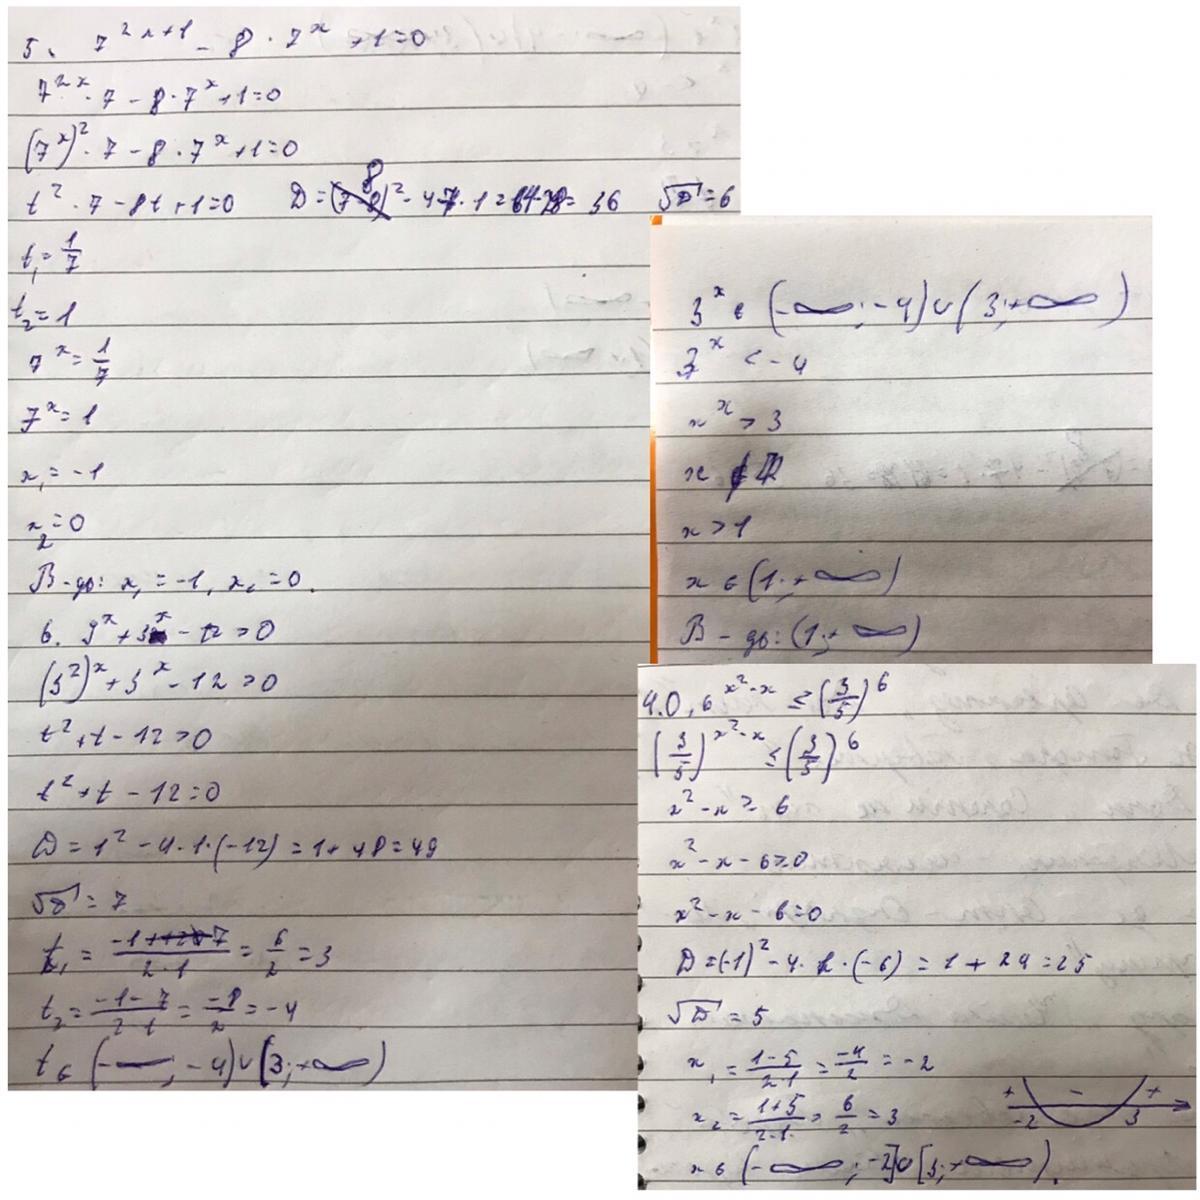 5. 7^{2x+1} - 8 · 7^x + 1 = 0
7^{2x} · 7 - 8 · 7^x + 1 = 0
(7^x)^2 · 7 - 8 · 7^x + 1 = 0
t^2 · 7 - 8t + 1 = 0 D = 8^2 - 4 · 7 · 1 = 64 - 28 = 36 √D = 6
t_1 = 1/7
t_2 = 1
7^x = 1/7
7^x = 1
x_1 = -1
x_2 = 0
В-дь: x_1 = -1, x_2 = 0.
6. 9^x + 3^x - 12 > 0
(3^2)^x + 3^x - 12 > 0
t^2 + t - 12 > 0
t^2 + t - 12 = 0
D = 1^2 - 4 · 1 · (-12) = 1 + 48 = 49
√D = 7
t_1 = (-1 + 7)/(2 · 1) = 6/2 = 3
t_2 = (-1 - 7)/(2 · 1) = -8/2 = -4
t ∈ (-∞; -4) ∪ (3; +∞)
3^x ∈ (-∞; -4) ∪ (3; +∞)
3^x < -4
x^x > 3
x
x > 1
x ∈ (1; +∞)
В-дь: (1; +∞)
4. 0,6^{x^2-x} ≤ (3/5)^6
(3/5)^{x^2-x} ≤ (3/5)^6
x^2 - x ≥ 6
x^2 - x - 6 ≥ 0
x^2 - x - 6 = 0
D = (-1)^2 - 4 · 1 · (-6) = 1 + 24 = 25
√D = 5
x_1 = (1 - 5)/(2 · 1) = -4/2 = -2
x_2 = (1 + 5)/(2 · 1) = 6/2 = 3
+ - +
-2 3
x ∈ (-∞; -2] ∪ [3; +∞).